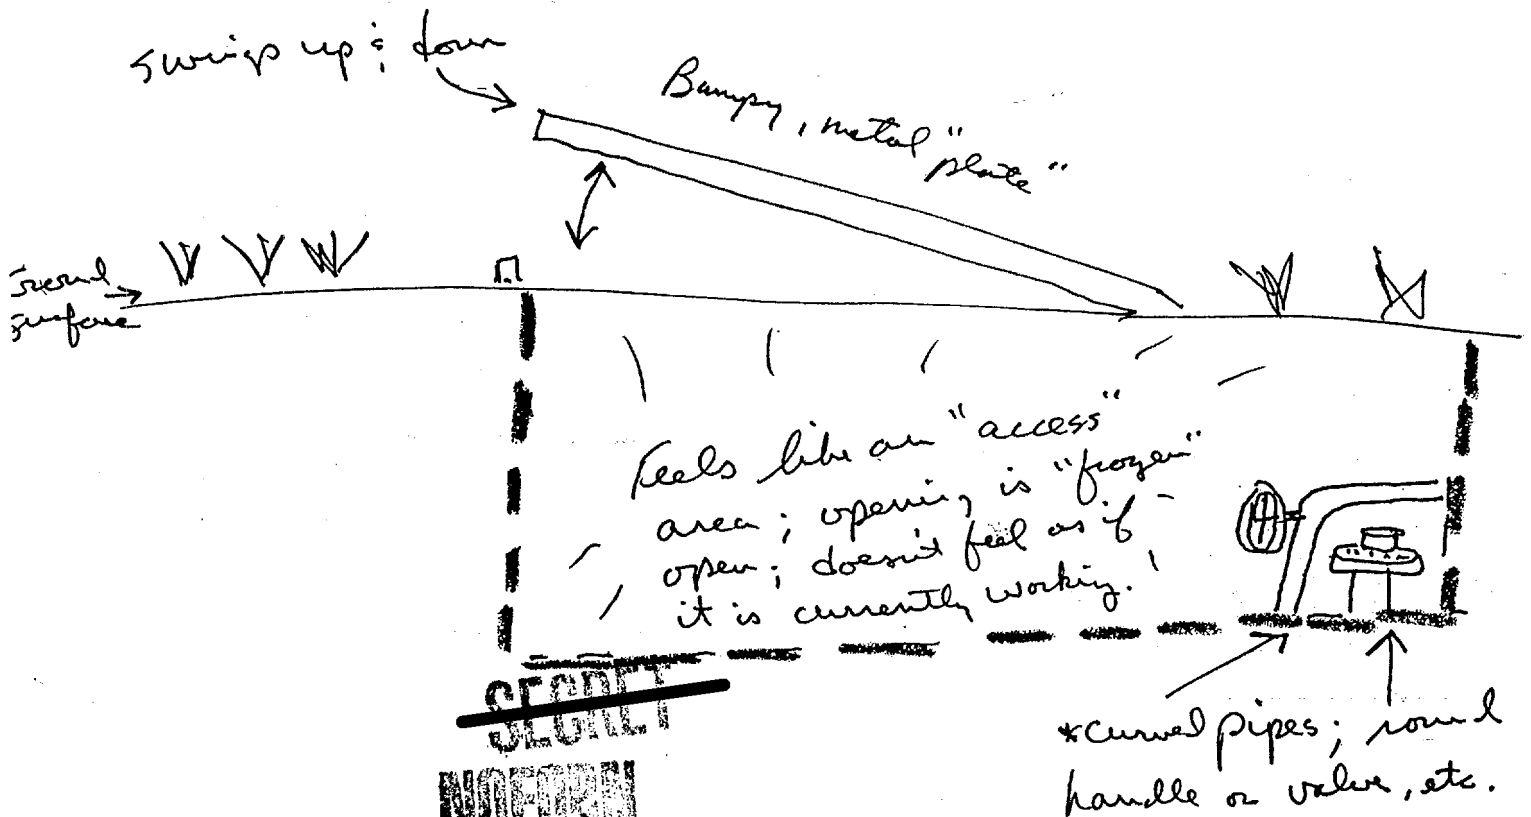 Swings up & down
Bumpy, metal "
plate"
Ground
surface
Feels like an "access"
area; opening is "frozen"
open; doesn't feel as if
it is currently working.
SECRET
NOFORN
*curved pipes; round
handle or valve, etc.